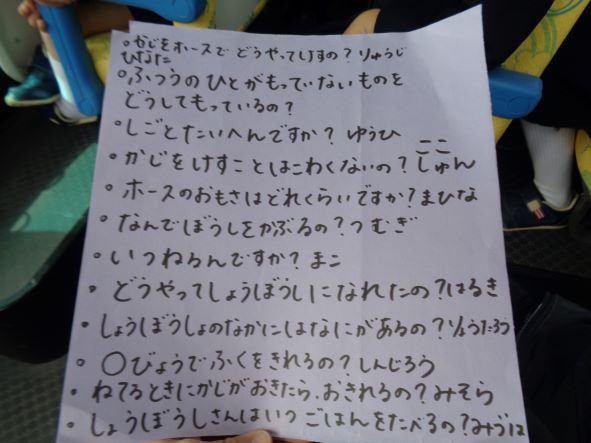 。かじをホースで どうやってけすの? りゅうじ
ひなた
。ふつうのひとがもっていないものを
どうしてもっているの?
・しごとたいへんですか? ゆうひ
ここ
・かじをけすことはこわくないの? しゅん
・ホースのおもさはどれくらいですか? まひな
・なんでぼうしをかぶるの? つむぎ
・いつねるんですか? まこ
・どうやってしょうぼうしになれたの? はるき
・しょうぼうしょのなかにはなにがあるの? りょうたろう
・○びょうでふくをきれるの? しんじろう
・ねてるときにかじがおきたら、おきれるの? みそら
・しょうぼうしさんはいつ ごはんをたべるの? みづは